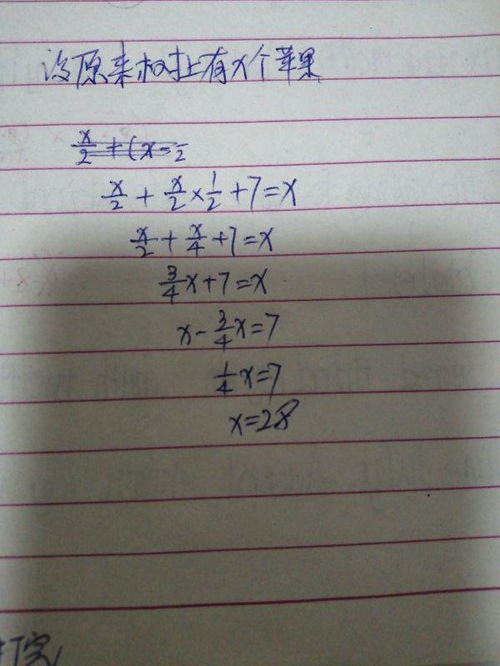 设原来树上有x个苹果
x/2 + (x - 1/2
x/2 + x/2 × 1/2 + 7 = x
x/2 + x/4 + 7 = x
3/4 x + 7 = x
x - 3/4 x = 7
1/4 x = 7
x = 28